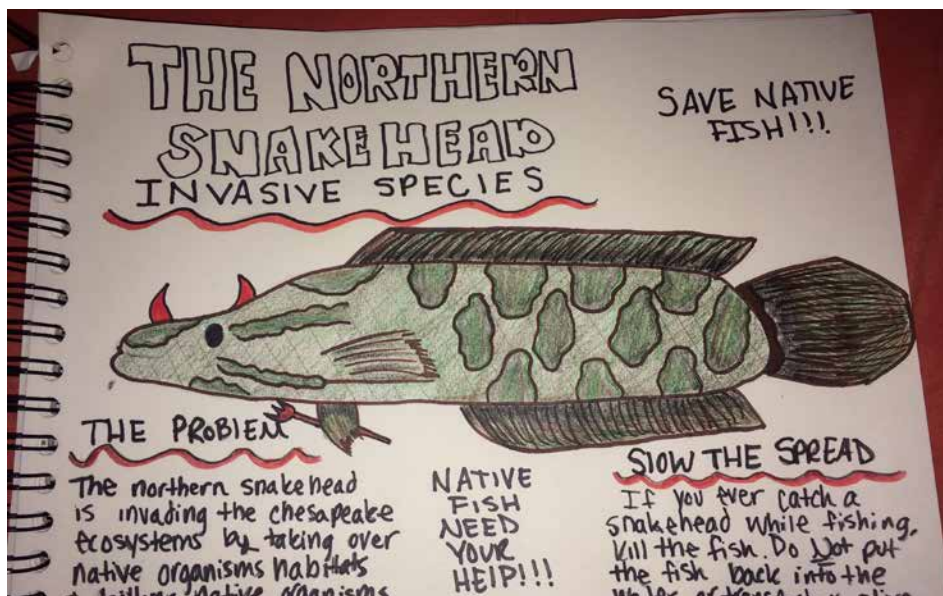 THE NORTHERN
SNAKEHEAD
INVASIVE SPECIES
SAVE NATIVE
FISH!!!
THE PROBLEM
The northern snakehead
is invading the chesapeake
ecosystems by taking over
native organisms habitats
killing native organisms
NATIVE
FISH
NEED
YOUR
HELP!!!
SLOW THE SPREAD
If you ever catch a
snakehead while fishing,
kill the fish. Do Not put
the fish back into the